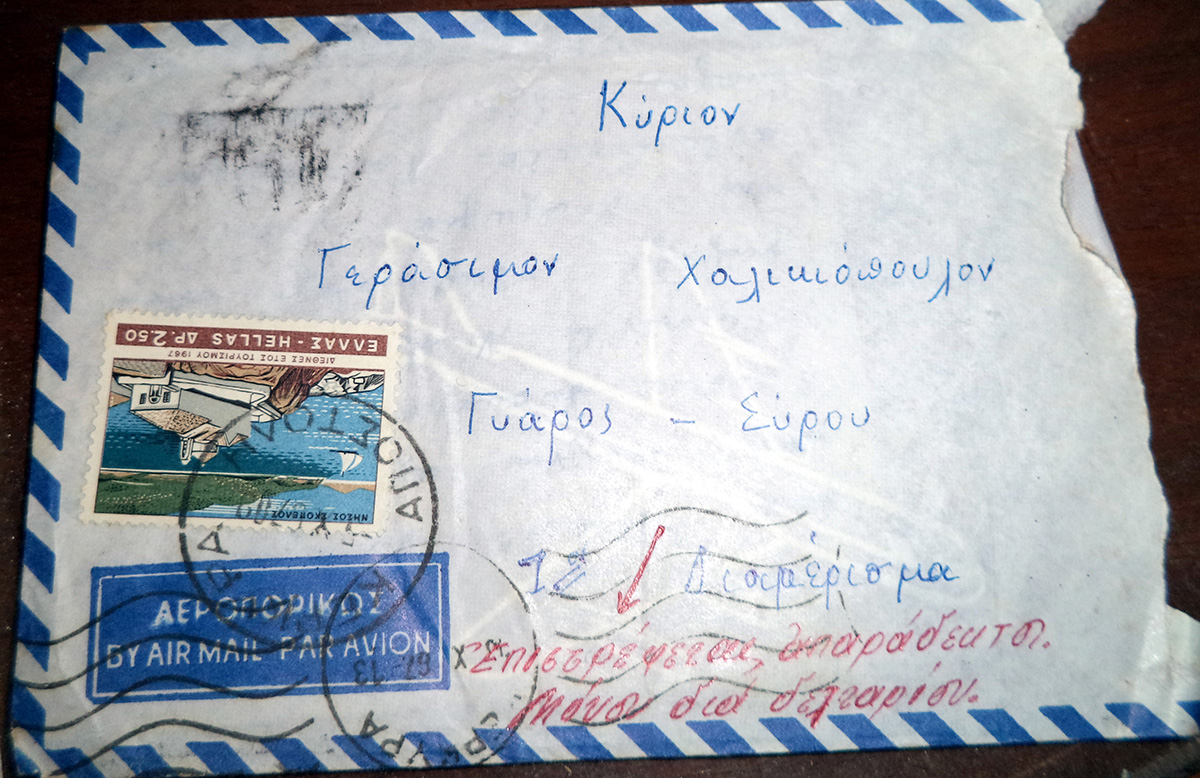 Κύριον
Γεράσιμον Χαλικιόπουλον
Γυάρος - Σύρου
Διαμέρισμα
Επιστρέφεται απαράδεκτοι.
Μόνον διά δελταρίου.
ΕΛΛΑΣ - HELLAS ΔΡ. 2.50
ΔΙΕΘΝΕΣ ΕΤΟΣ ΤΟΥΡΙΣΜΟΥ 1967
ΝΗΣΟΣ ΣΚΟΠΕΛΟΣ
ΑΕΡΟΠΟΡΙΚΩΣ
BY AIR MAIL - PAR AVION